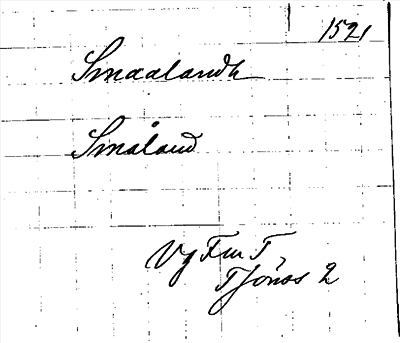 1521
Smaalandh
Småland
Vg Fm T
Tjönäs 2